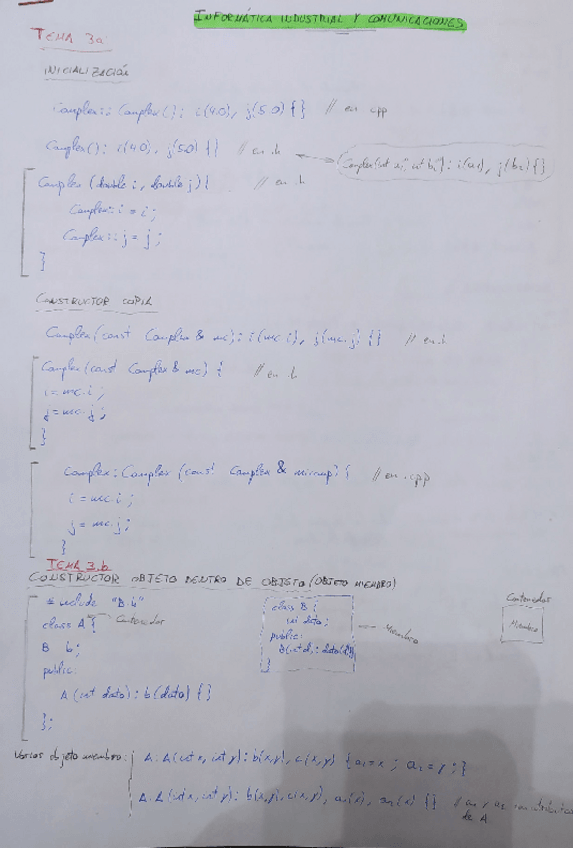 INFORMÁTICA INDUSTRIAL Y COMUNICACIONES
TEMA 3a
INICIALIZACIÓN
Complex::Complex(): i(4.0), j(5.0) {} // en cpp
Complex(): i(4.0), j(5.0) {} // en .h
Complex(int ai, int bi): i(ai), j(bi) {}
Complex (double i, double j) { // en .h
Complex::i = i;
Complex::j = j;
}
CONSTRUCTOR COPIA
Complex(const Complex & mc): i(mc.i), j(mc.j) {} // en .h
Complex(const Complex & mc) { // en .h
i = mc.i;
j = mc.j;
}
Complex:Complex (const Complex & ) { // en .cpp
i = mc.i;
j = mc.j;
}
TEMA 3.b
CONSTRUCTOR OBJETO DENTRO DE OBJETO (OBJETO MIEMBRO)
# include "B.h"
class A { Contenedor
B b;
public:
A (int dato): b(dato) {}
};
class B {
int dato;
public:
B(int d): dato(d){}
}
Miembro
Contenedor
Miembro
Varios objeto miembro:
A::A(int x, int y): b(x,y), c(x,y) {a1=x; a2=y;}
A::A(int x, int y): b(x,y), c(x,y), a1(x), a2(x) {} // a1 y a2 son atributos
de A